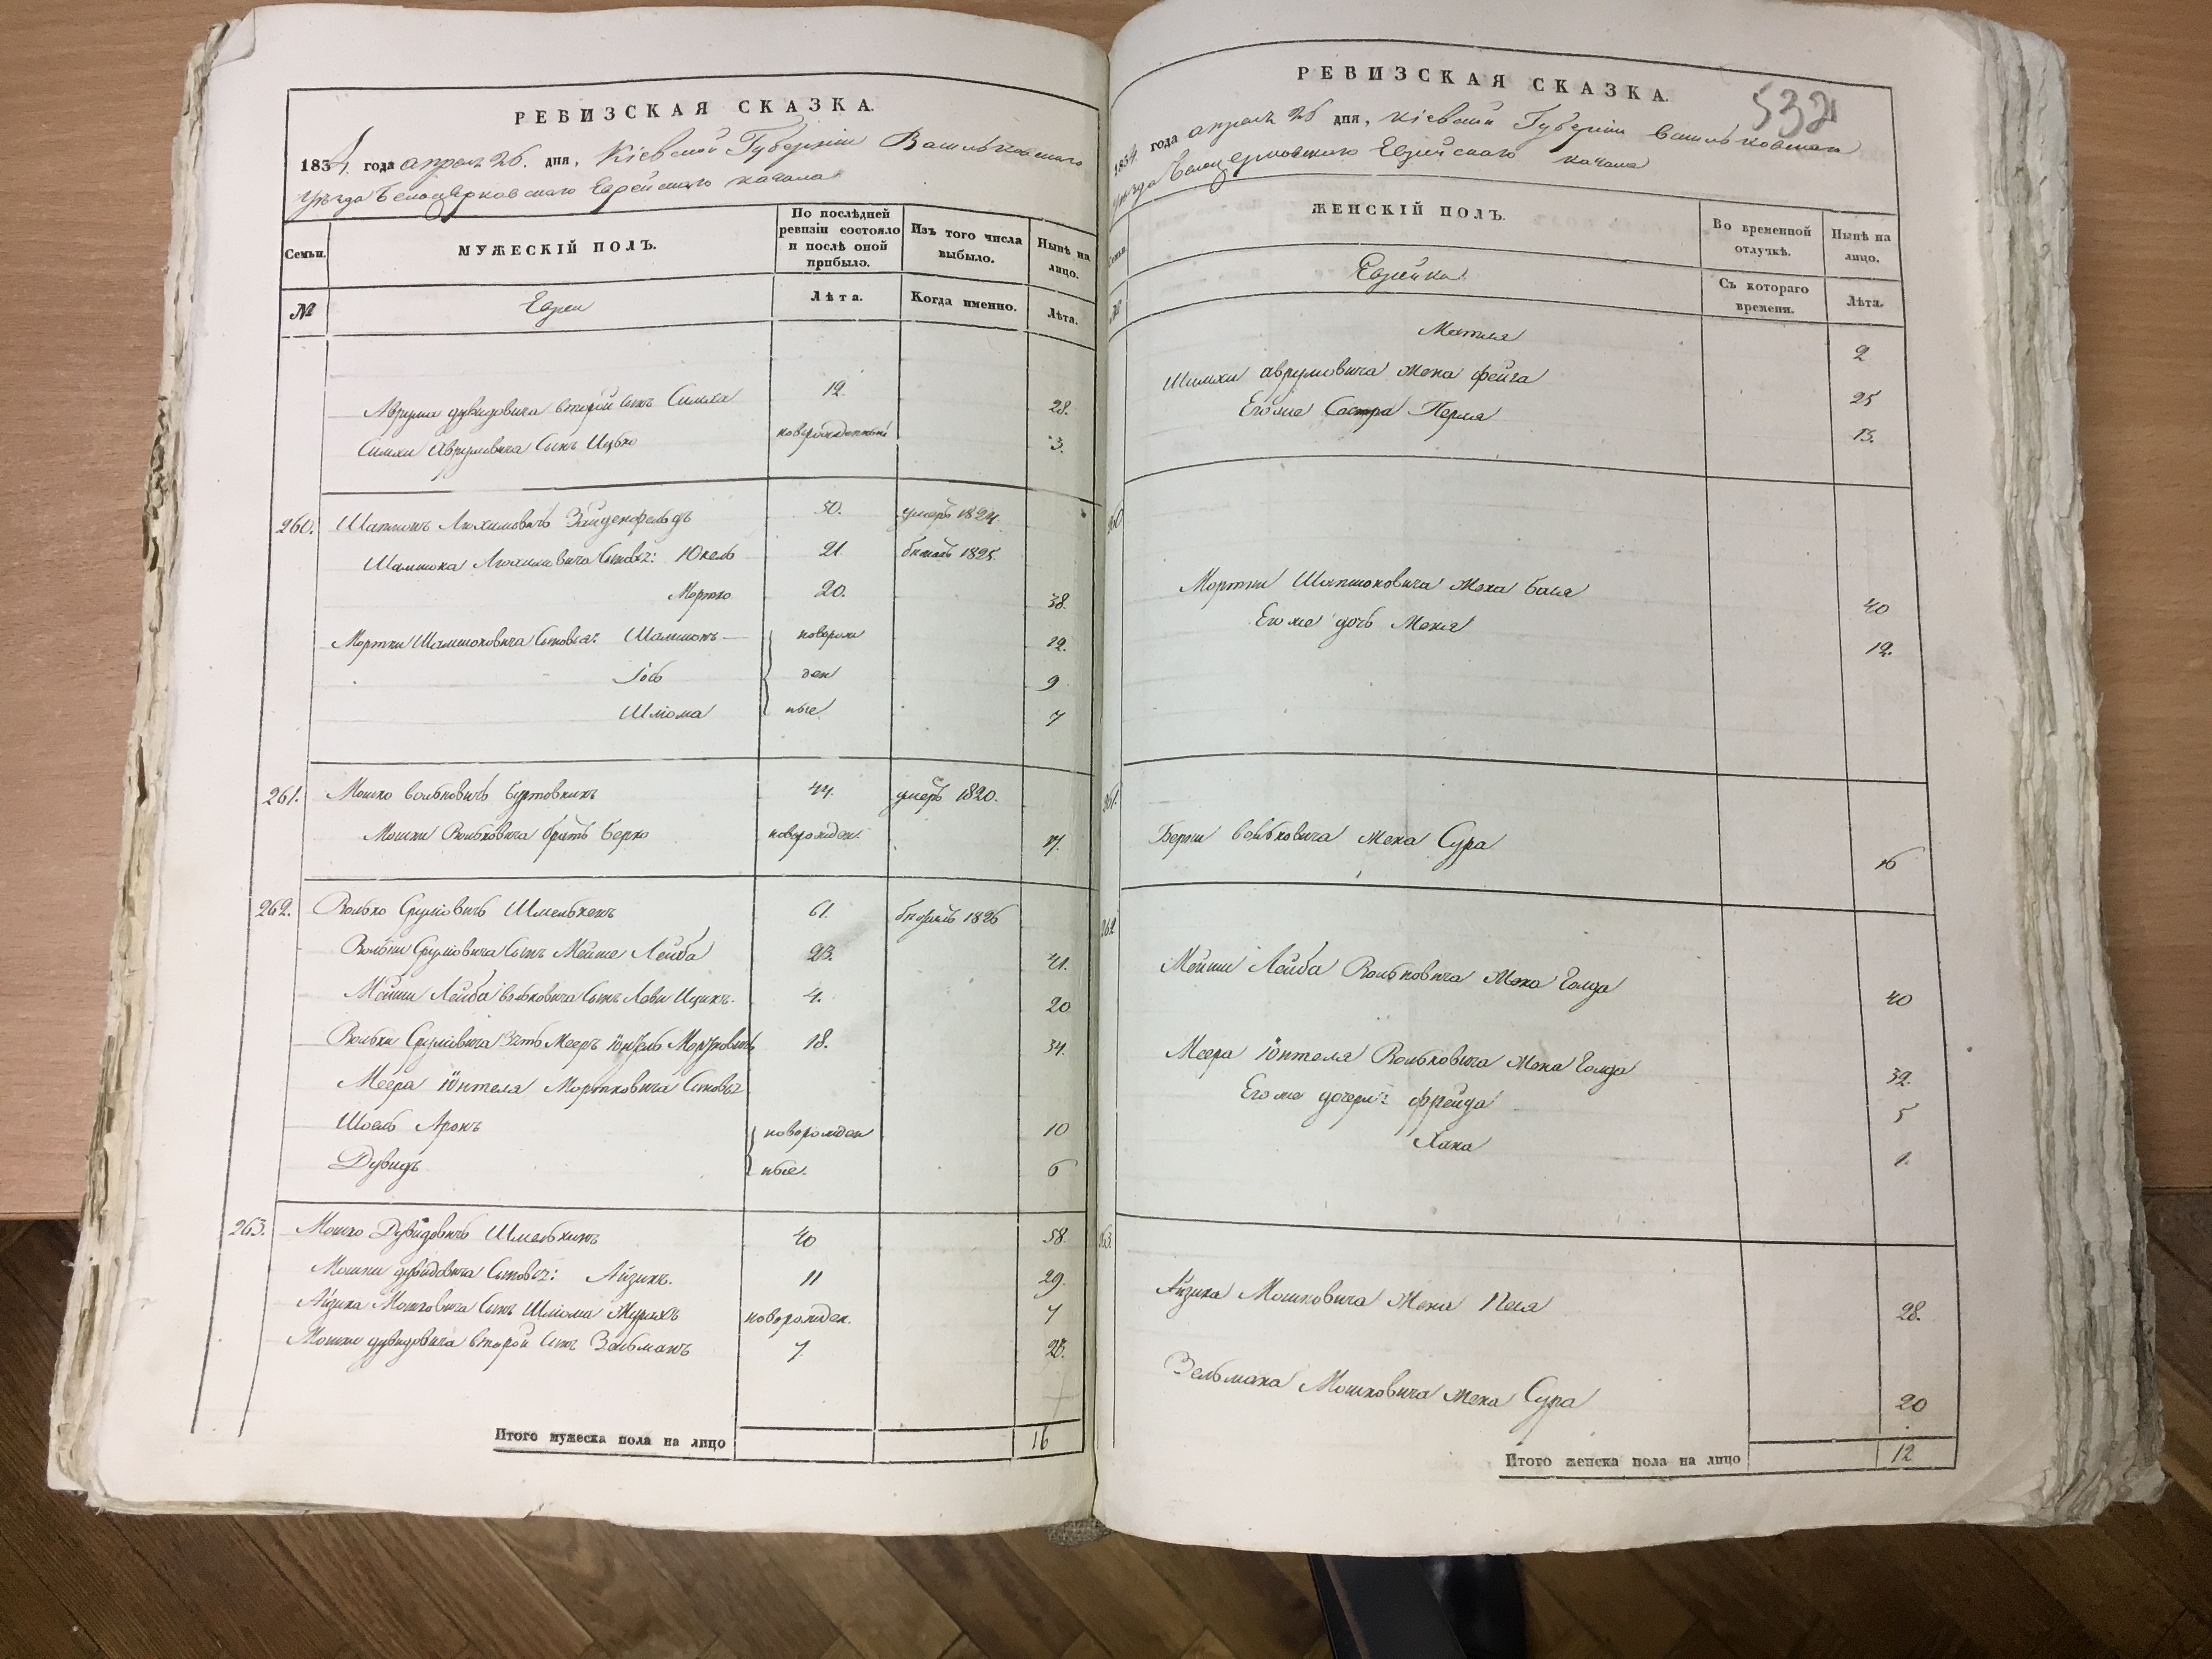 РЕВИЗСКАЯ СКАЗКА.
1834. года апреля 26. дня, Кіевской Губерніи Васильковскаго
Уѣзда Белоцерковскаго Еврейскаго кагала
Семьи. МУЖЕСКІЙ ПОЛЪ. По послѣдней ревизіи состояло и послѣ оной прибыло. Изъ того числа выбыло. Нынѣ на лицо.
№ Евреи Лѣта. Когда именно. Лѣта.
Аврума дувидовича второй сынъ Симха 12. 28.
Симхи Аврумовича сынъ Ицко новорожденный 3.
260. Шапшонъ 50. умеръ 1824.
Юкель 21. 1825.
Мортко 20. 38.
Мортки Шамшоновича сыновья: Шамшонъ новорож 12.
Іось ден 9
Шліома ные 7
261. Мошко Вольковичъ 44. умеръ 1820.
Мошки Вольковича братъ Берко новорожден.
262. Волько Сруліовичъ Шмелькенъ 61. 1826
Вольки Сруліовича сынъ Мейше Лейба 23. 41.
Мейши Лейба Вольковича сынъ Леви Ицикъ. 4. 20
Вольки Сруліовича зять Мееръ Мортковичъ 18. 34.
Меера Мортковича сыновья
Шоель Аронъ новорожден 10
Дувидъ ные. 6
263. Мошко Дувидовичъ Шмелькинъ 40 58.
Мошки дувидовича сыновья: Айзикъ. 11 29.
Айзика Мошковича сынъ Шліома новорожден. 7
Мошки дувидовича второй сынъ Зельманъ 7. 25.
Итого мужеска пола на лицо 16
532
РЕВИЗСКАЯ СКАЗКА.
1834. года апреля 26 дня, Кіевской Губерніи Васильковскаго
Уѣзда Белоцерковскаго Еврейскаго кагала
ЖЕНСКІЙ ПОЛЪ. Во временной отлучкѣ. Нынѣ на лицо.
№ Еврейки Съ котораго времени. Лѣта.
2
Шимхи аврумовича жена фейга 25
Его же Сестра Перля 13.
260
Мортки Шапшоновича жена Бася 40
Его же дочь 12.
261.
Берки Вольковича жена Сура 16
262
Мейши Лейба Вольковича жена Голда 40
Меера Вольковича жена Голда 32.
Его же дочери: фрейда 5
Хана 1.
263.
Айзика Мошковича жена Песя 28.
Зельмана Мошковича жена Сура 20
Итого женска пола на лицо 12